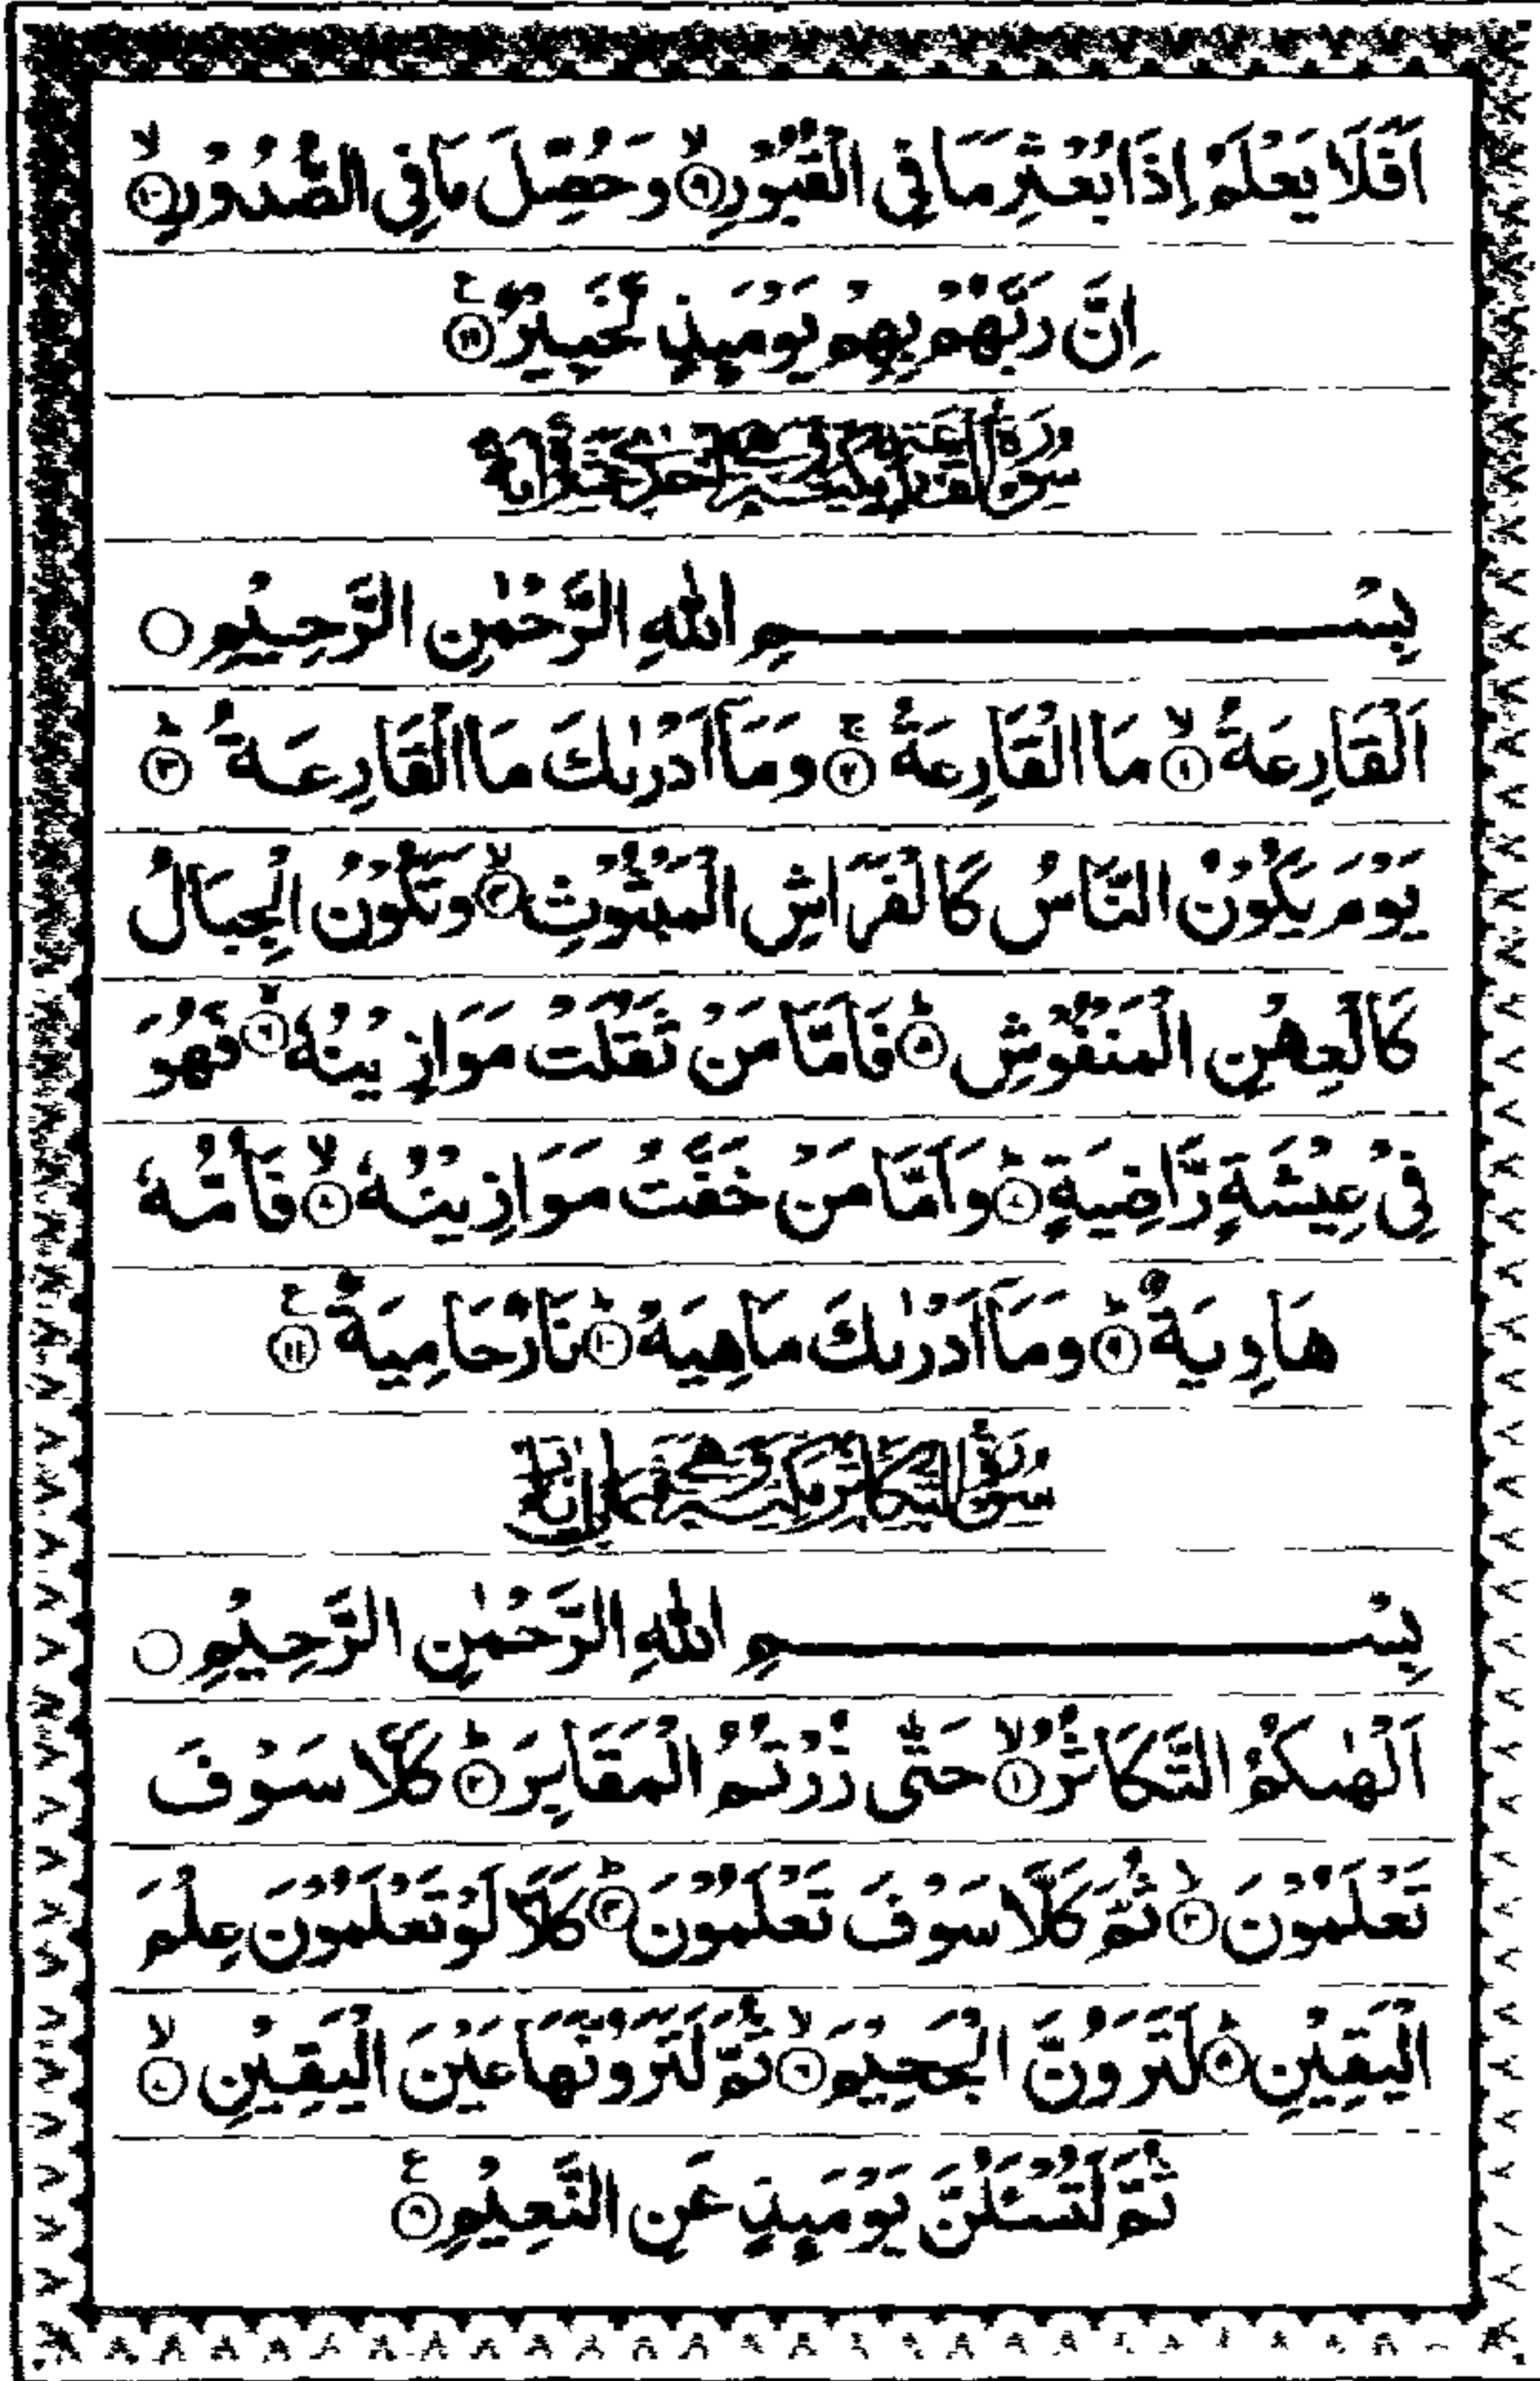 اَفَلَا يَعْلَمُ اِذَا بُعْثِرَ مَا فِي الْقُبُوْرِ ۙ﴿۹﴾ وَحُصِّلَ مَا فِي الصُّدُوْرِ ۙ﴿۱۰﴾
اِنَّ رَبَّهُمْ بِهِمْ يَوْمَىِٕذٍ لَّخَبِيْرٌ ﴿۱۱﴾ ع
سورة القارعة مكية وهى احدى عشرة اية
بِسْمِ اللّٰهِ الرَّحْمٰنِ الرَّحِيْمِ ○
اَلْقَارِعَةُ ۙ﴿۱﴾ مَا الْقَارِعَةُ ۚ﴿۲﴾ وَمَاۤ اَدْرٰىكَ مَا الْقَارِعَةُ ؕ﴿۳﴾
يَوْمَ يَكُوْنُ النَّاسُ كَالْفَرَاشِ الْمَبْثُوْثِ ۙ﴿۴﴾ وَتَكُوْنُ الْجِبَالُ
كَالْعِهْنِ الْمَنْفُوْشِ ؕ﴿۵﴾ فَاَمَّا مَنْ ثَقُلَتْ مَوَازِيْنُهٗ ۙ﴿۶﴾ فَهُوَ
فِيْ عِيْشَةٍ رَّاضِيَةٍ ؕ﴿۷﴾ وَاَمَّا مَنْ خَفَّتْ مَوَازِيْنُهٗ ۙ﴿۸﴾ فَاُمُّهٗ
هَاوِيَةٌ ؕ﴿۹﴾ وَمَاۤ اَدْرٰىكَ مَا هِيَهْ ؕ﴿۱۰﴾ نَارٌ حَامِيَةٌ ﴿۱۱﴾ ع
سورة التكاثر مكية وهى ثمان ايات
بِسْمِ اللّٰهِ الرَّحْمٰنِ الرَّحِيْمِ ○
اَلْهٰىكُمُ التَّكَاثُرُ ۙ﴿۱﴾ حَتّٰى زُرْتُمُ الْمَقَابِرَ ؕ﴿۲﴾ كَلَّا سَوْفَ
تَعْلَمُوْنَ ۙ﴿۳﴾ ثُمَّ كَلَّا سَوْفَ تَعْلَمُوْنَ ؕ﴿۴﴾ كَلَّا لَوْ تَعْلَمُوْنَ عِلْمَ
الْيَقِيْنِ ؕ﴿۵﴾ لَتَرَوُنَّ الْجَحِيْمَ ۙ﴿۶﴾ ثُمَّ لَتَرَوُنَّهَا عَيْنَ الْيَقِيْنِ ۙ﴿۷﴾
ثُمَّ لَتُسْـَٔلُنَّ يَوْمَىِٕذٍ عَنِ النَّعِيْمِ ﴿۸﴾ ع